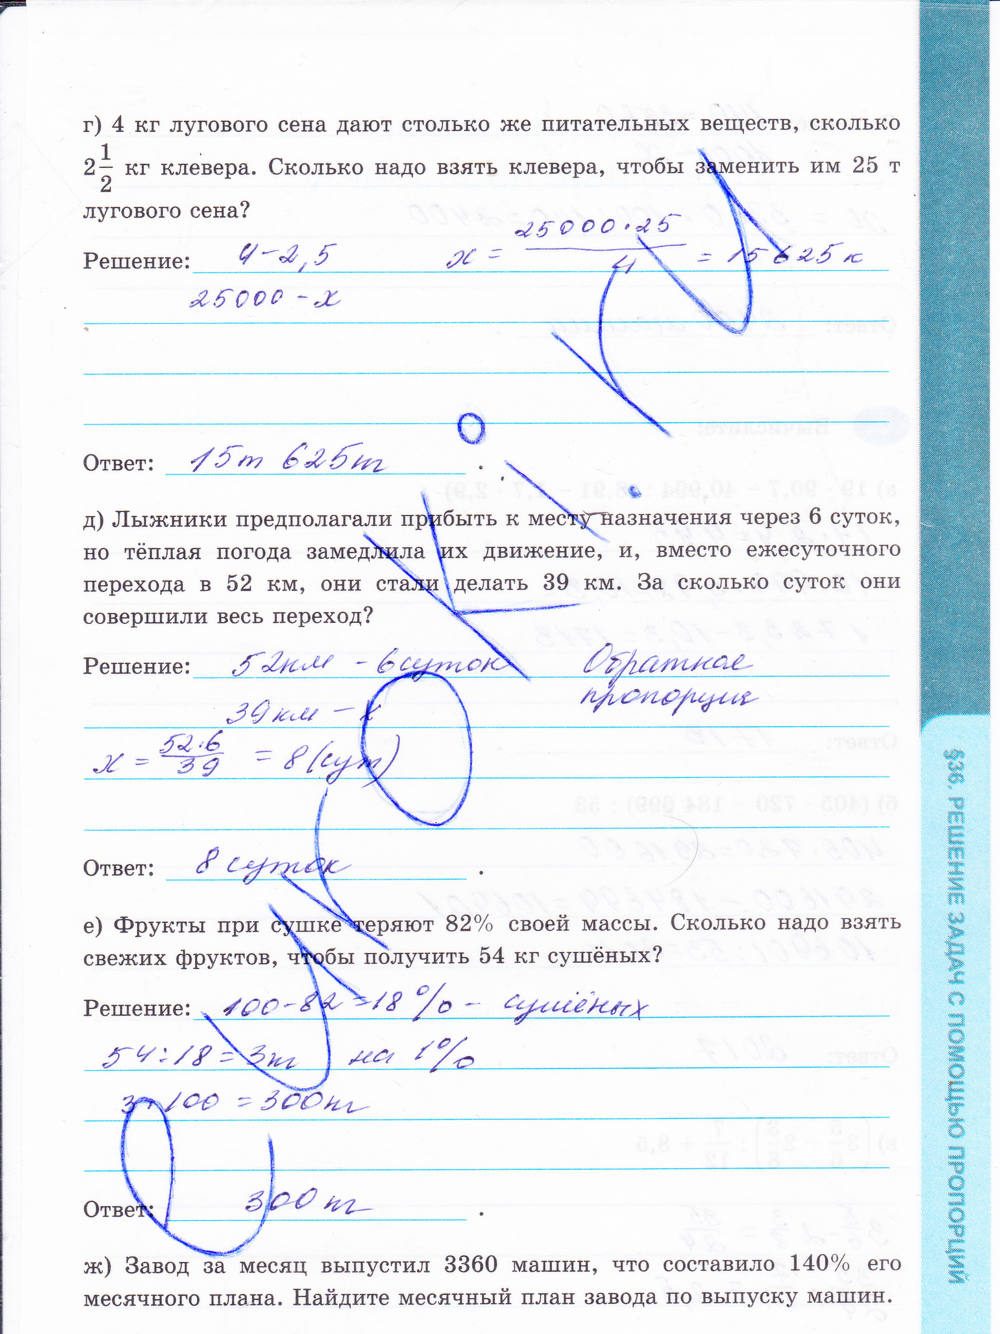 г) 4 кг лугового сена дают столько же питательных веществ, сколько
2 1/2 кг клевера. Сколько надо взять клевера, чтобы заменить им 25 т
лугового сена?
Решение: 4 - 2,5 x = 25000·25/4 = 15625 к
25000 - x
Ответ: 15т 625кг .
д) Лыжники предполагали прибыть к месту назначения через 6 суток,
но тёплая погода замедлила их движение, и, вместо ежесуточного
перехода в 52 км, они стали делать 39 км. За сколько суток они
совершили весь переход?
Решение: 52км - 6 суток Обратная
пропорция
39км - x
x = 52·6/39 = 8 (сут)
Ответ: 8 суток .
е) Фрукты при сушке теряют 82% своей массы. Сколько надо взять
свежих фруктов, чтобы получить 54 кг сушёных?
Решение: 100-82=18% - сушёных
54:18=3кг на 1%
3·100=300кг
Ответ: 300кг .
ж) Завод за месяц выпустил 3360 машин, что составило 140% его
месячного плана. Найдите месячный план завода по выпуску машин.
§36. РЕШЕНИЕ ЗАДАЧ С ПОМОЩЬЮ ПРОПОРЦИЙ